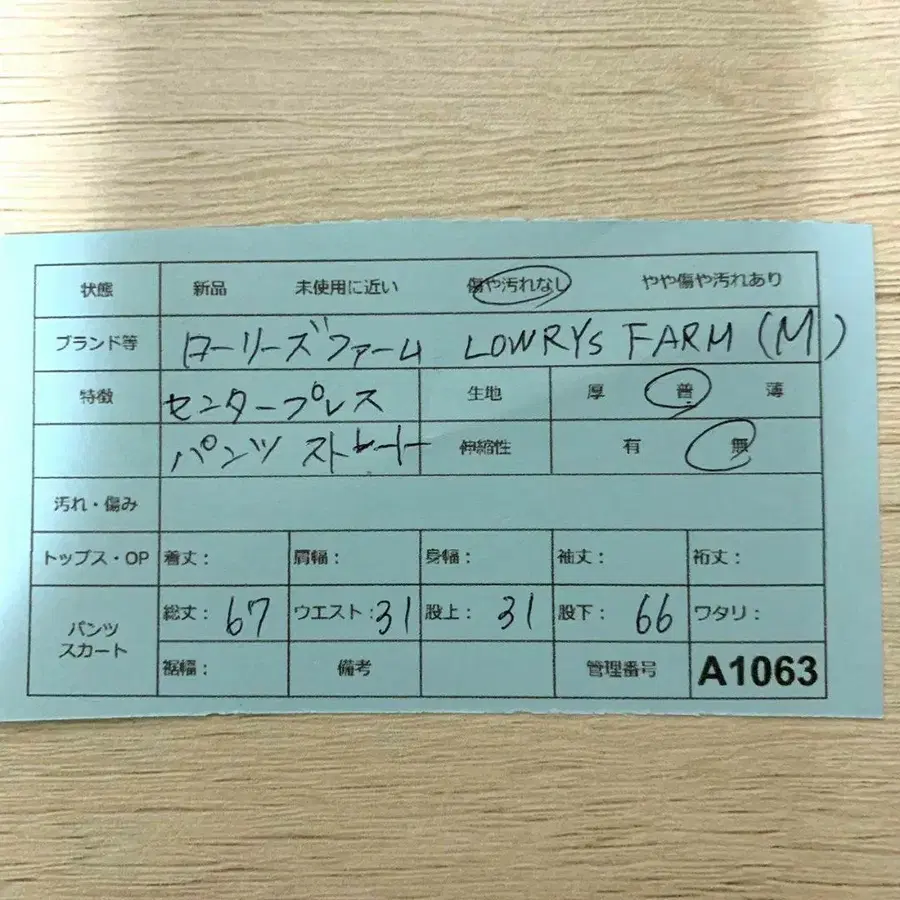 状態 新品 未使用に近い 傷や汚れなし やや傷や汚れあり
ブランド等 ローリーズファーム LOWRYS FARM (M)
特徴 センタープレス 生地 厚 普 薄
パンツ ストレート 伸縮性 有 無
汚れ・傷み
トップス・OP 着丈: 肩幅: 身幅: 袖丈: 裄丈:
パンツ スカート 総丈: 67 ウエスト: 31 股上: 31 股下: 66 ワタリ:
裾幅: 備考 管理番号 A1063